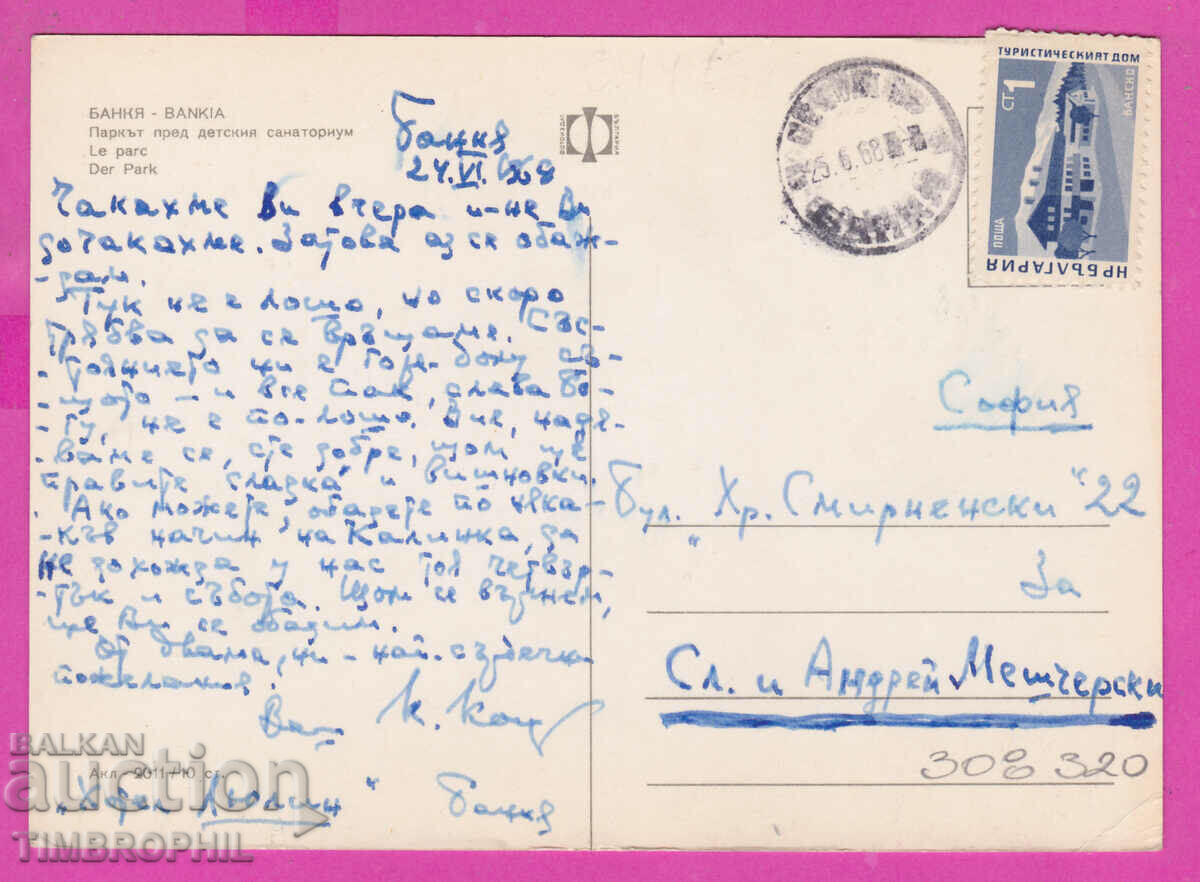 БАНКЯ - BANKIA
Паркът пред детския санаториум
Le parc
Der Park
ФОТОИЗДАТ
БЪЛГАРИЯ
Банкя
24.VI. 1968
Чакахме Ви вчера и не Ви
дочакахме. Затова аз се обаж-
- дам.
Тук не е лошо, но скоро
трябва да се връщаме. Със-
- тоянието ни е горе-долу съ-
- щото - и все пак, слава бо-
- гу, не е по-лошо. Вие, надя-
- ваме се, сте добре, щом ще
правите сладка и вишновки.
Ако можете, обадете по няка-
- къв начин на Калинка, да
не дохожда у нас тоя четвър-
- тък и събота. Щом се върнем,
ще Ви се обадим.
От двама ни - най-сърдечни
пожелания.
Ваш К.
Акл - 2011/10 ст.
„Хотел Люлин“ Банкя
25.6.68
ТУРИСТИЧЕСКИЯТ ДОМ
БАНСКО
СТ 1
ПОЩА
НР БЪЛГАРИЯ
София
бул. „Хр. Смирненски“ 22
За
Сл. и Андрей Мешчерски
308 320
BALKAN
auction
TIMBROPHIL